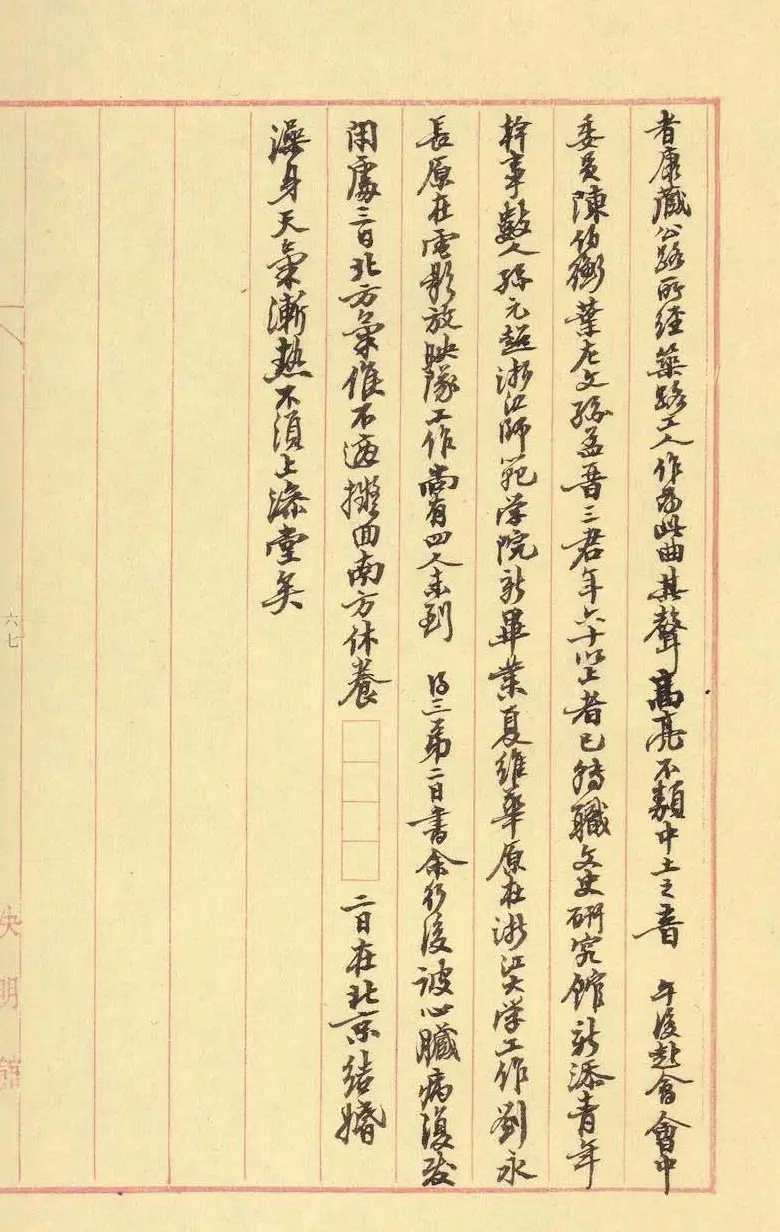 者康藏公路所经築路工人作為此曲其聲高亮不類中土之音 午後赴會會中
委员陳伯衡葉左文孫孟晋三君年六十以上者已轉職文史研究館新添青年
幹事數人孫元超浙江師範学院新畢業夏維華原在浙江大学工作劉永
長原在電影放映隊工作尚有四人未到 得三弟二日書余行後彼心臟病復发
閑處三日北方氣候不適擬回南方休養 □□□□ 二日在北京结婚
澡身天氣漸热不須上澡堂矣
六七
決明館